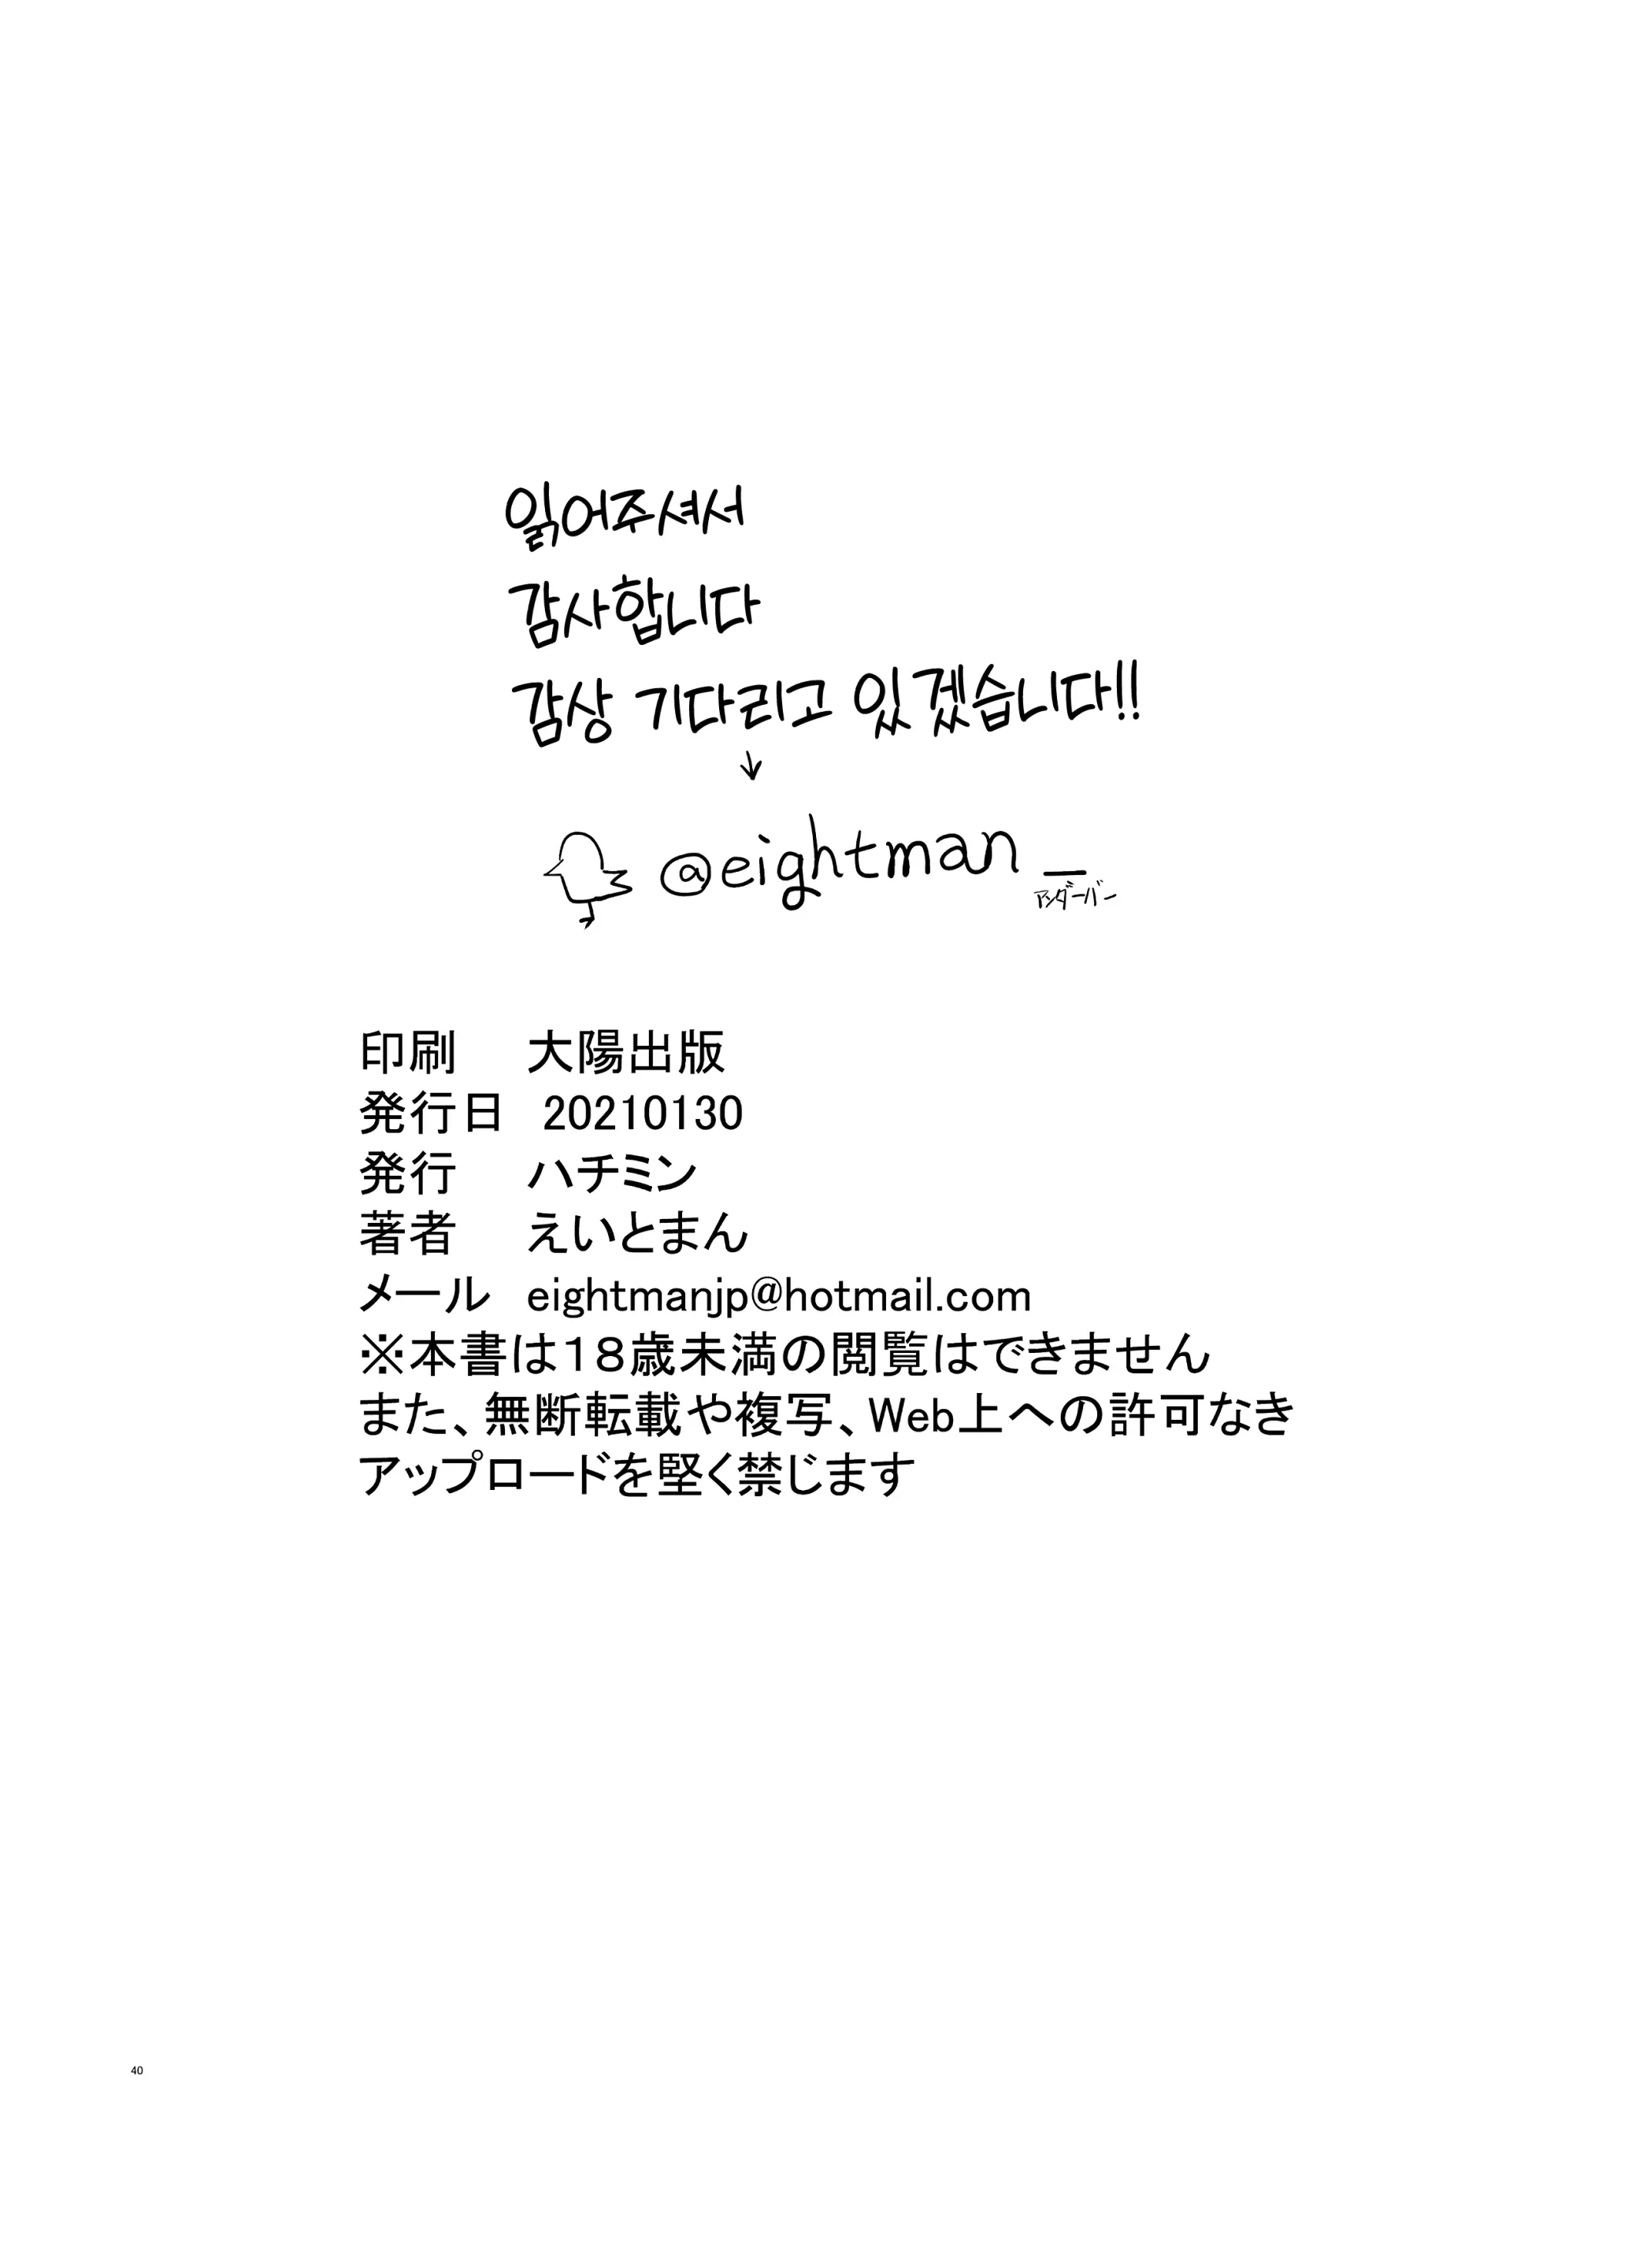 읽어주셔서
감사합니다
감상 기다리고 있겠습니다!!
@eightman_
アンダーバー
印刷 大陽出版
発行日 20210130
発行 ハチミン
著者 えいとまん
メール eightmanjp@hotmail.com
※本書は18歳未満の閲覧はできません
また、無断転載や複写、Web上への許可なき
アップロードを堅く禁じます
40